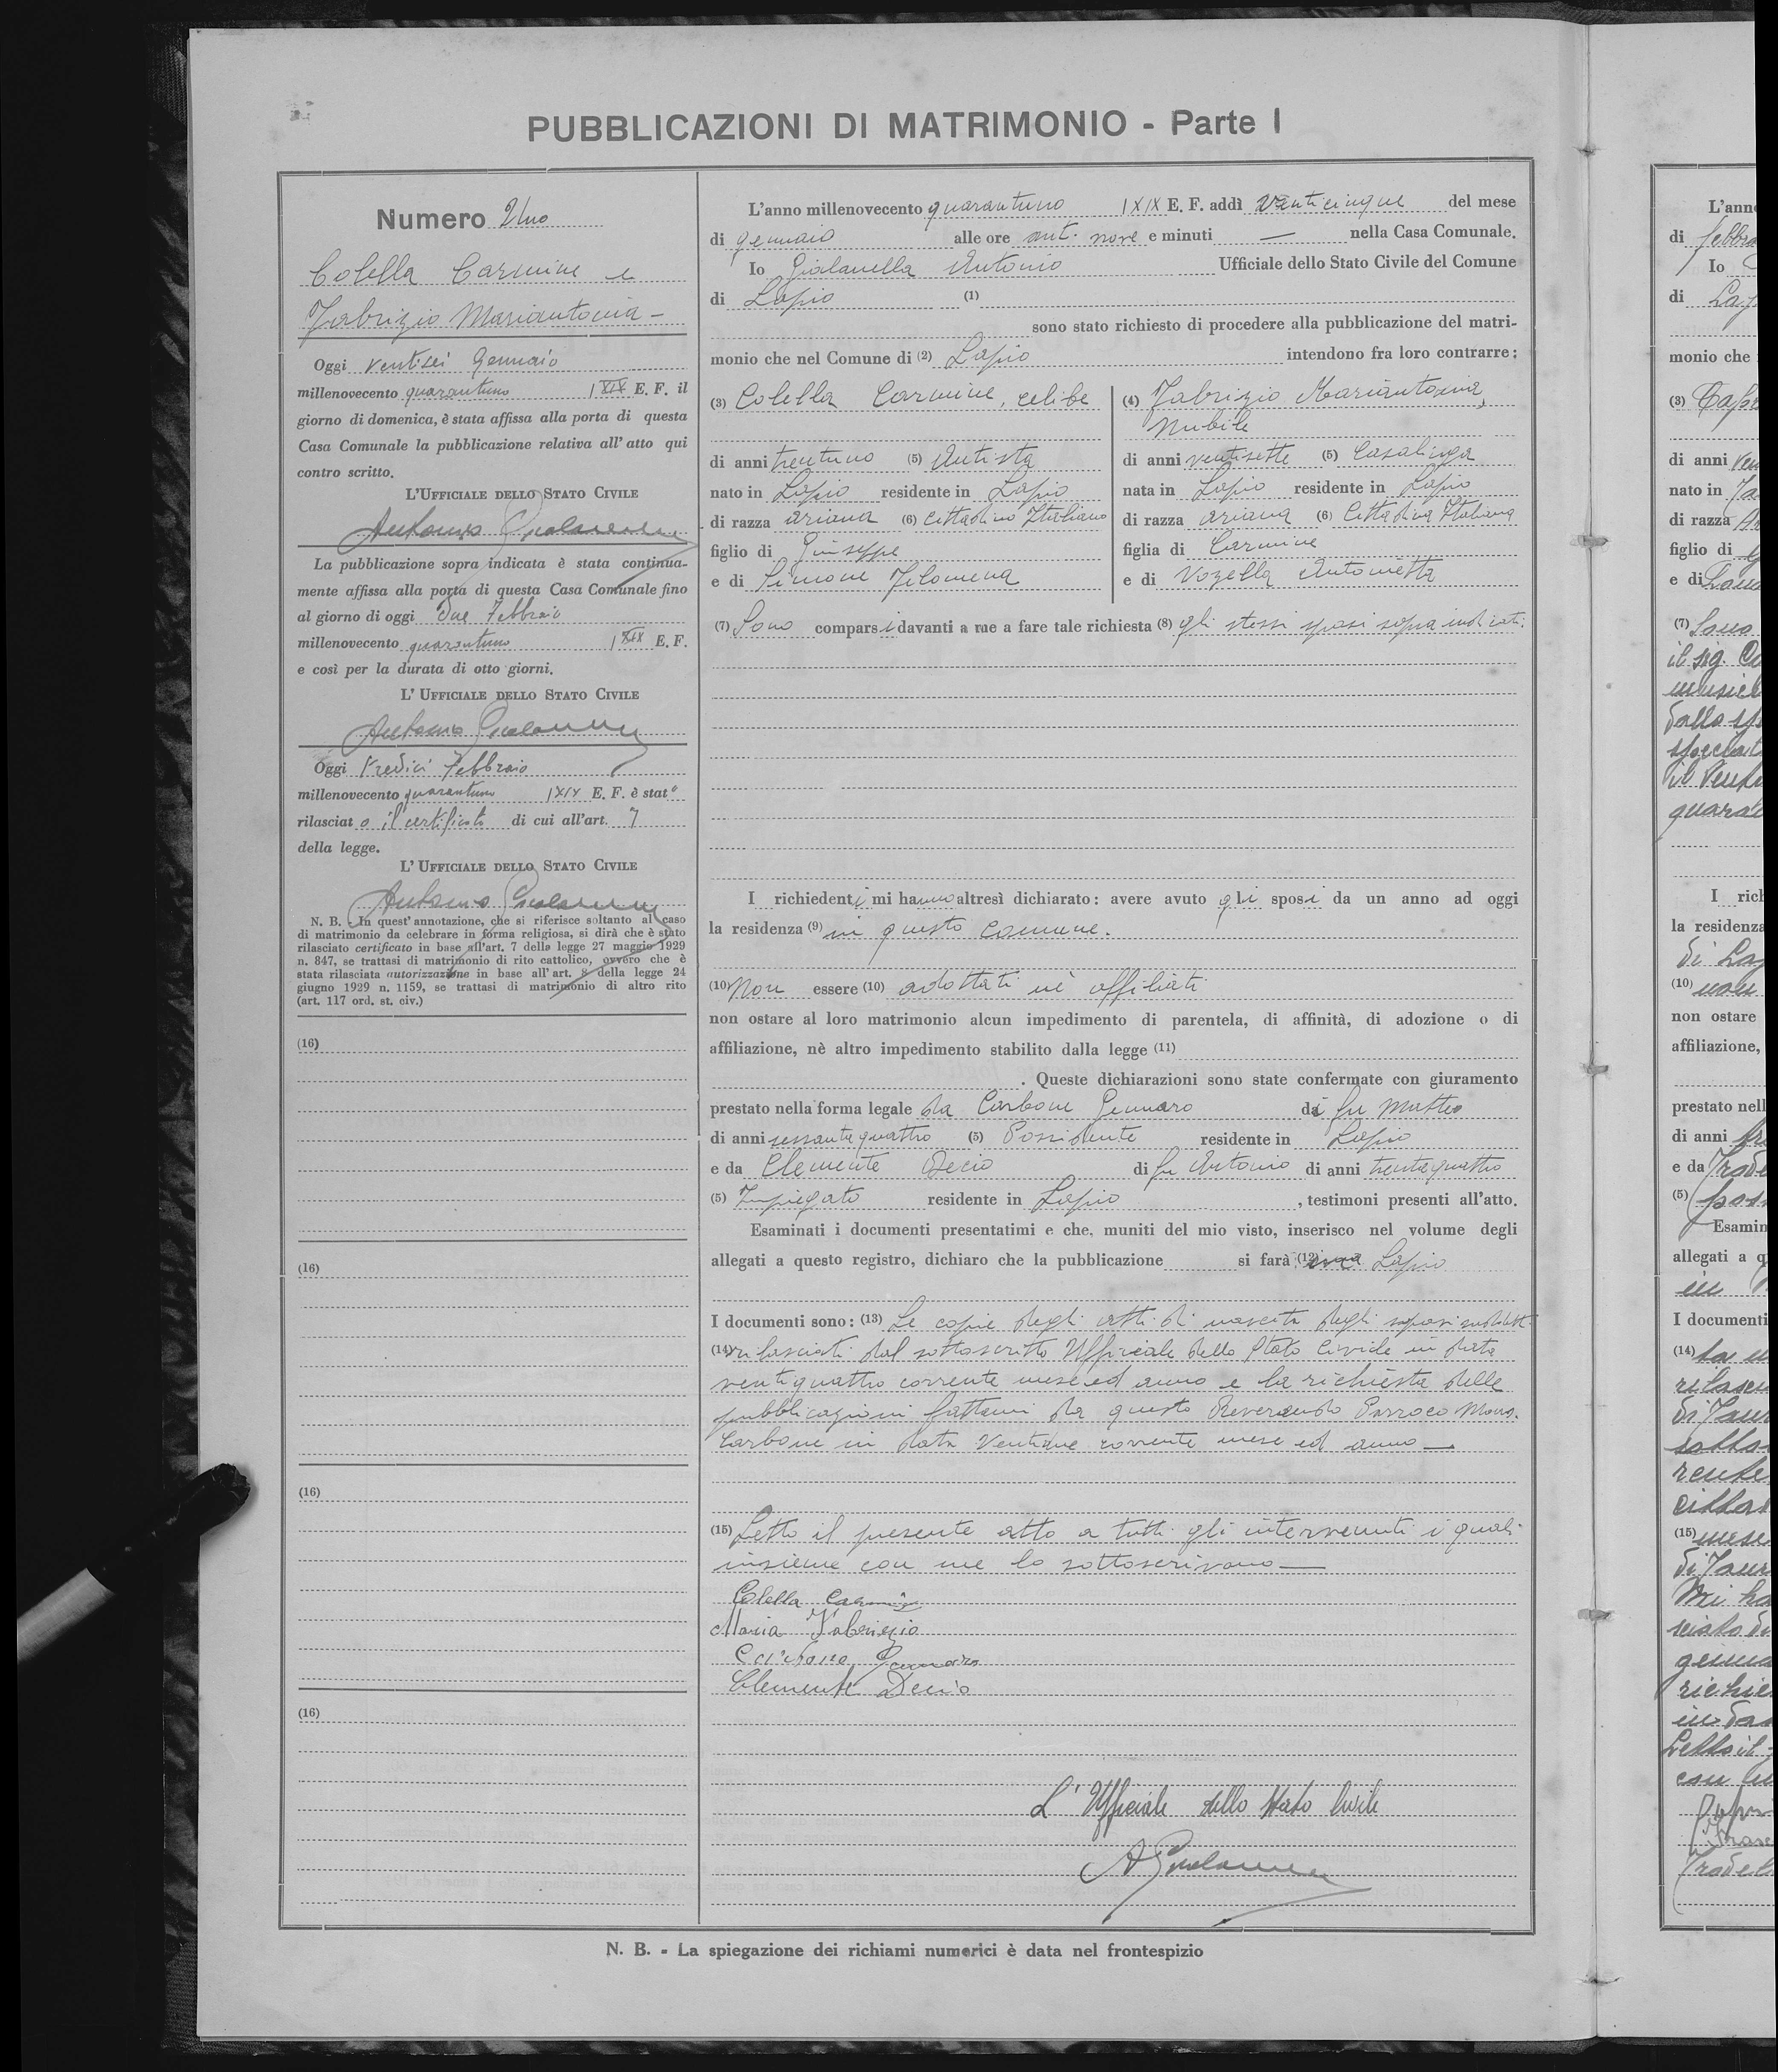 PUBBLICAZIONI DI MATRIMONIO - Parte I
Numero Uno
Colella Carmine e
Fabrizio Mariantonia -
Oggi ventisei Gennaio
millenovecento quarantuno XIX E. F. il
giorno di domenica, è stata affissa alla porta di questa
Casa Comunale la pubblicazione relativa all'atto qui
contro scritto.
L'UFFICIALE DELLO STATO CIVILE
Antonio Gialanella
La pubblicazione sopra indicata è stata continua-
mente affissa alla porta di questa Casa Comunale fino
al giorno di oggi due Febbraio
millenovecento quarantuno XIX E. F.
e così per la durata di otto giorni.
L'UFFICIALE DELLO STATO CIVILE
Antonio Gialanella
Oggi tredici Febbraio
millenovecento quarantuno XIX E. F. è stato
rilasciato il certificato di cui all'art. 7
della legge.
L'UFFICIALE DELLO STATO CIVILE
Antonio Gialanella
N. B. - In quest'annotazione, che si riferisce soltanto al caso
di matrimonio da celebrare in forma religiosa, si dirà che è stato
rilasciato certificato in base all'art. 7 della legge 27 maggio 1929
n. 847, se trattasi di matrimonio di rito cattolico, ovvero che è
stata rilasciata autorizzazione in base all'art. 8 della legge 24
giugno 1929 n. 1159, se trattasi di matrimonio di altro rito
(art. 117 ord. st. civ.)
(16)
(16)
(16)
(16)
L'anno millenovecento quarantuno XIX E. F. addì venticinque del mese
di gennaio alle ore ant. nove e minuti — nella Casa Comunale.
Io Gialanella Antonio Ufficiale dello Stato Civile del Comune
di Lapio (1)
sono stato richiesto di procedere alla pubblicazione del matri-
monio che nel Comune di (2) Lapio intendono fra loro contrarre:
(3) Colella Carmine, celibe
di anni trentuno (5) Autista
nato in Lapio residente in Lapio
di razza ariana (6) cittadino Italiano
figlio di Giuseppe
e di Simone Filomena
(4) Fabrizio Mariantonia,
Nubile
di anni ventisette (5) Casalinga
nata in Lapio residente in Lapio
di razza ariana (6) Cittadina Italiana
figlia di Carmine
e di Vozella Antonietta
(7) Sono comparsi davanti a me a fare tale richiesta (8) gli stessi sposi sopra indicati.
I richiedenti mi hanno altresì dichiarato: avere avuto gli sposi da un anno ad oggi
la residenza (9) in questo Comune.
(10) Non essere (10) adottati nè affiliati
non ostare al loro matrimonio alcun impedimento di parentela, di affinità, di adozione o di
affiliazione, nè altro impedimento stabilito dalla legge (11)
. Queste dichiarazioni sono state confermate con giuramento
prestato nella forma legale da Carbone Gennaro di fu Matteo
di anni sessantaquattro (5) Possidente residente in Lapio
e da Clemente Decio di fu Antonio di anni trentaquattro
(5) Impiegato residente in Lapio , testimoni presenti all'atto.
Esaminati i documenti presentatimi e che, muniti del mio visto, inserisco nel volume degli
allegati a questo registro, dichiaro che la pubblicazione si farà (12) Lapio
I documenti sono: (13) Le copie degli atti di nascita degli sposi suddetti
(14) rilasciati dal sottoscritto Ufficiale dello Stato Civile in data
ventiquattro corrente mese ed anno e la richiesta delle
pubblicazioni fattami da questo Reverendo Parroco Mons.
Carbone in data Ventidue corrente mese ed anno —
(15) Letto il presente atto a tutti gli intervenuti i quali
insieme con me lo sottoscrivono —
Colella Carmine
Maria Fabrizio
Carbone Gennaro
Clemente Decio
L'Ufficiale dello Stato Civile
A Gialanella
N. B. - La spiegazione dei richiami numerici è data nel frontespizio
L'anno
di febbra
Io
di Lap
monio che
(3) Cap
di anni ven
nato in
di razza
figlio di
e di
(7) Sono
il sig.
dalla
quaran
I rich
la residenza
di Lap
(10) non
non ostare
affiliazione,
prestato nell
di anni
e da
(5) poss
Esamin
allegati a q
in
I documenti
(14)
(15) mese
Mi ha
richie
Letto il